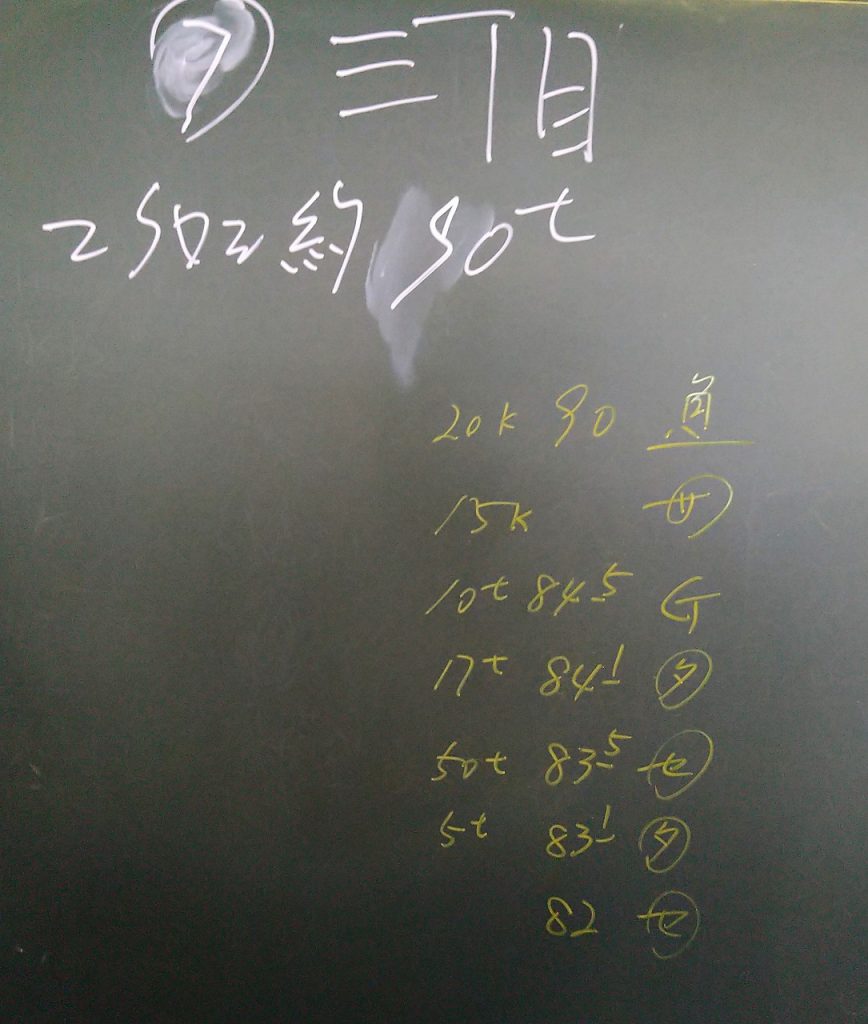 ⑦ 三丁目
約 90t
20K 90
15K ㋚
10t 84.5 G
17t 84.1 ㋟
50t 83.5 ㋝
5t 83.1 ㋟
82 ㋝